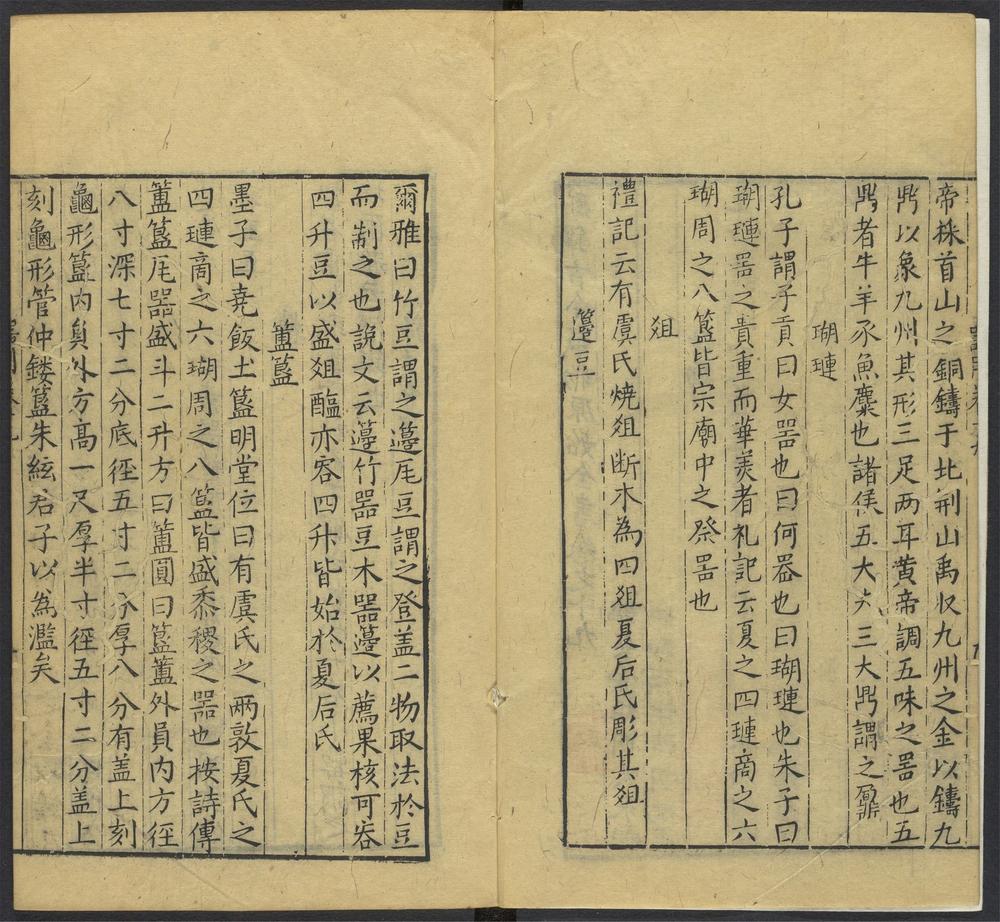 帝採首山之銅鑄于北荆山禹収九州之金以鑄九
鼎以象九州其形三足两耳黄帝調五味之噐也五
鼎者牛羊豕魚麋也諸侯五大夫三大鼎謂之鼐
瑚璉
孔子謂子貢曰女噐也曰何噐也曰瑚璉也朱子曰
瑚璉噐之貴重而華羙者礼記云夏之四璉商之六
瑚周之八簋皆宗廟中之祭噐也
俎
禮記云有虞氏焼俎断木為四俎夏后氏彫其俎
籩豆
爾雅曰竹豆謂之籩瓦豆謂之登盖二物取法於豆
而制之也說文云籩竹噐豆木噐籩以薦果核可容
四升豆以盛俎醢亦容四升皆始於夏后氏
簠簋
墨子曰堯飯土簋明堂位曰有虞氏之两敦夏氏之
四璉商之六瑚周之八簋皆盛黍稷之噐也按詩傳
簠簋瓦噐盛斗二升方曰簠圓曰簋簠外員内方徑
八寸深七寸二分底徑五寸二分厚八分有盖上刻
龜形簋内員外方髙一尺厚半寸徑五寸二分盖上
刻龜形管仲鏤簋朱絃君子以為濫矣